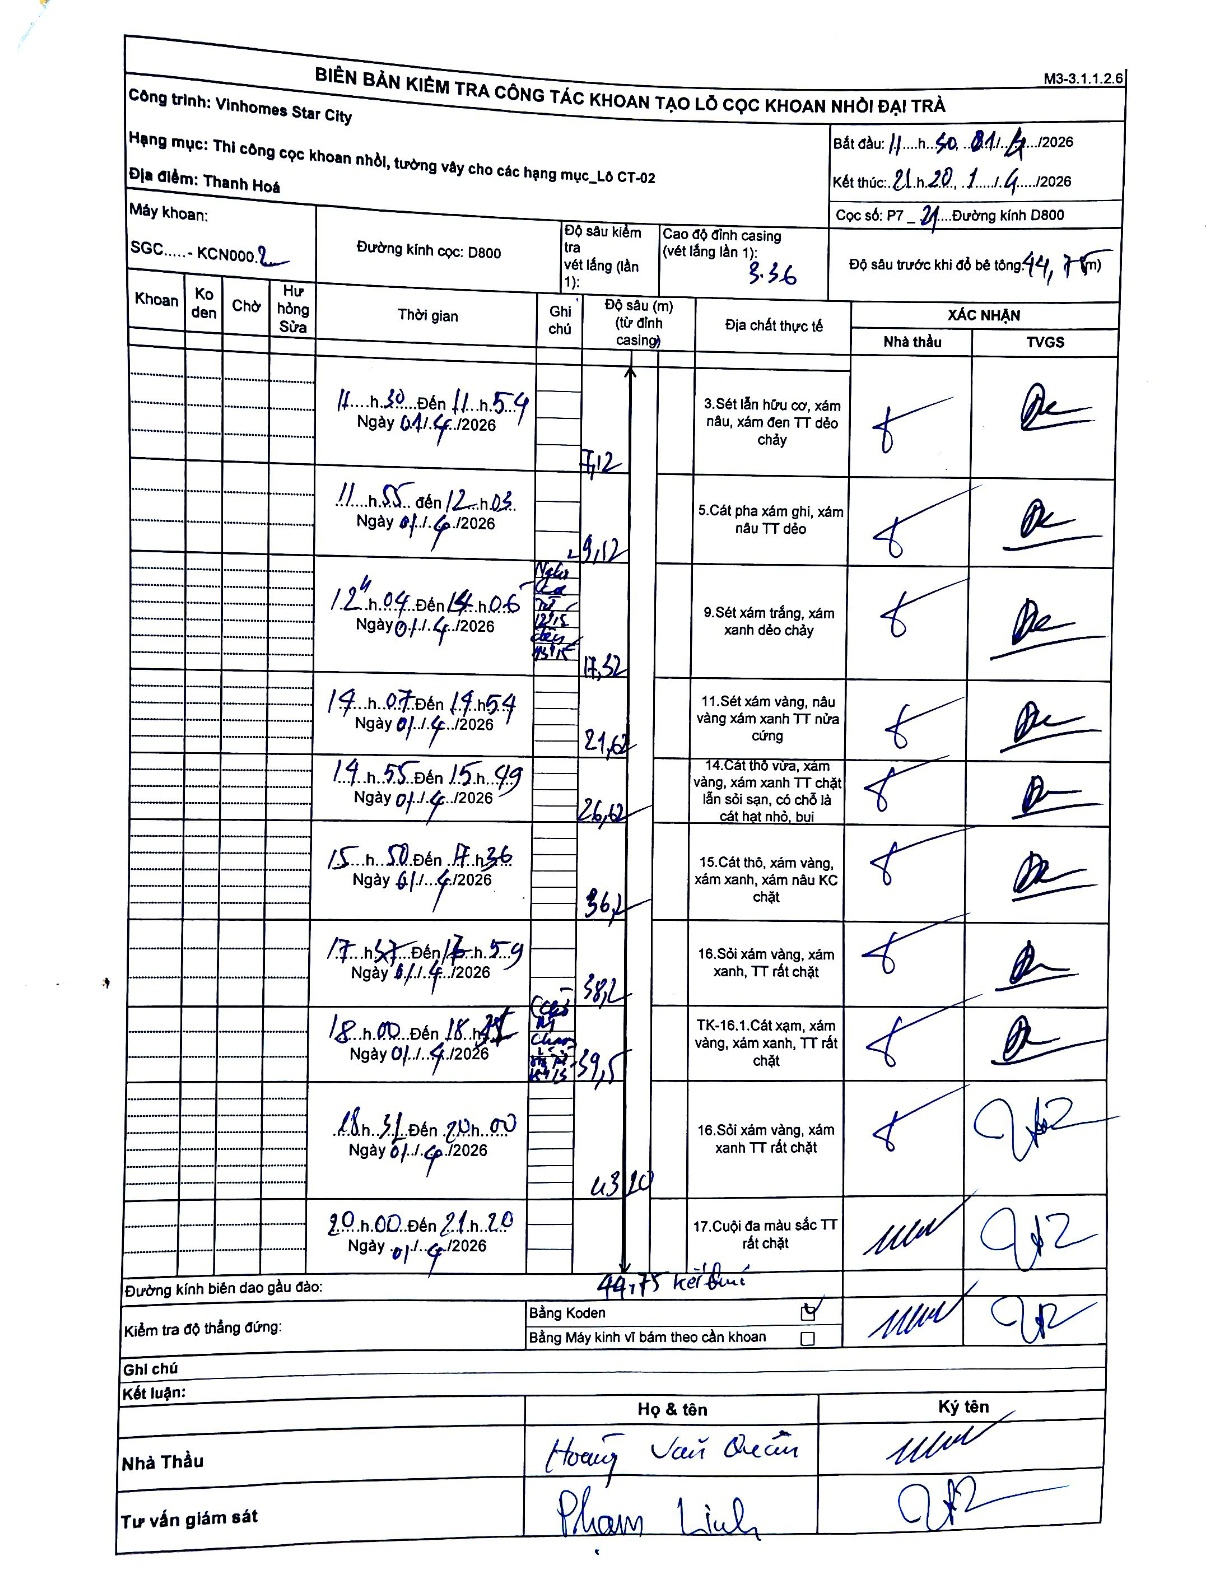 M3-3.1.1.2.6
BIÊN BẢN KIỂM TRA CÔNG TÁC KHOAN TẠO LỖ CỌC KHOAN NHỒI ĐẠI TRÀ
Công trình: Vinhomes Star City
Hạng mục: Thi công cọc khoan nhồi, tường vây cho các hạng mục_Lô CT-02
Địa điểm: Thanh Hoá
Bắt đầu: 11....h..30, 01/.4.../2026
Kết thúc: 21.h.20., .1...../.4...../2026
Cọc số: P7 _ 21....Đường kính D800
Máy khoan:
SGC.....- KCN000.2
Đường kính cọc: D800
Độ sâu kiểm
tra
vét lắng (lần
1):
Cao độ đỉnh casing
(vét lắng lần 1):
3.36
Độ sâu trước khi đổ bê tông:44,75(m)
Khoan
Ko
den
Chờ
Hư
hỏng
Sửa
Thời gian
Ghi
chú
Độ sâu (m)
(từ đỉnh
casing)
Địa chất thực tế
XÁC NHẬN
Nhà thầu
TVGS
11....h.30....Đến 11..h.54
Ngày 01/.4../2026
7,12
3.Sét lẫn hữu cơ, xám
nâu, xám đen TT dẻo
chảy
11....h.55.. đến 12..h.03.
Ngày 01/.4../2026
9,12
5.Cát pha xám ghi, xám
nâu TT dẻo
12..h.04..Đến 14..h.06
Ngày 01/.4../2026
Nghỉ
ca
từ
12h15
đến
13h15
17,32
9.Sét xám trắng, xám
xanh dẻo chảy
14....h..07.Đến .14.h54
Ngày 01/.4../2026
21,62
11.Sét xám vàng, nâu
vàng xám xanh TT nửa
cứng
.14..h.55.Đến .15.h..49
Ngày 01/.4../2026
26,62
14.Cát thô vừa, xám
vàng, xám xanh TT chặt
lẫn sỏi sạn, có chỗ là
cát hạt nhỏ, bụi
15...h..50.Đến .17.h36
Ngày 01/...4./2026
36,2
15.Cát thô, xám vàng,
xám xanh, xám nâu KC
chặt
.17..h37...Đến 17..h.59
Ngày 01/./.4../2026
38,2
16.Sỏi xám vàng, xám
xanh, TT rất chặt
18.h.00..Đến 18.h
Ngày 01/../.4./2026
39,5
TK-16.1.Cát xạm, xám
vàng, xám xanh, TT rất
chặt
.18h..31.Đến .20h..00
Ngày 01/./.4./2026
43,20
16.Sỏi xám vàng, xám
xanh TT rất chặt
20.h.00..Đến 21.h.20
Ngày .01/../.4./2026
17.Cuội đa màu sắc TT
rất chặt
Đường kính biên dao gầu đào:
44,75 kết thúc
Kiểm tra độ thẳng đứng:
Bằng Koden ☑
Bằng Máy kinh vĩ bám theo cần khoan ☐
Ghi chú
Kết luận:
Họ & tên
Ký tên
Nhà Thầu
Hoàng Văn Quân
Tư vấn giám sát
Phạm Linh